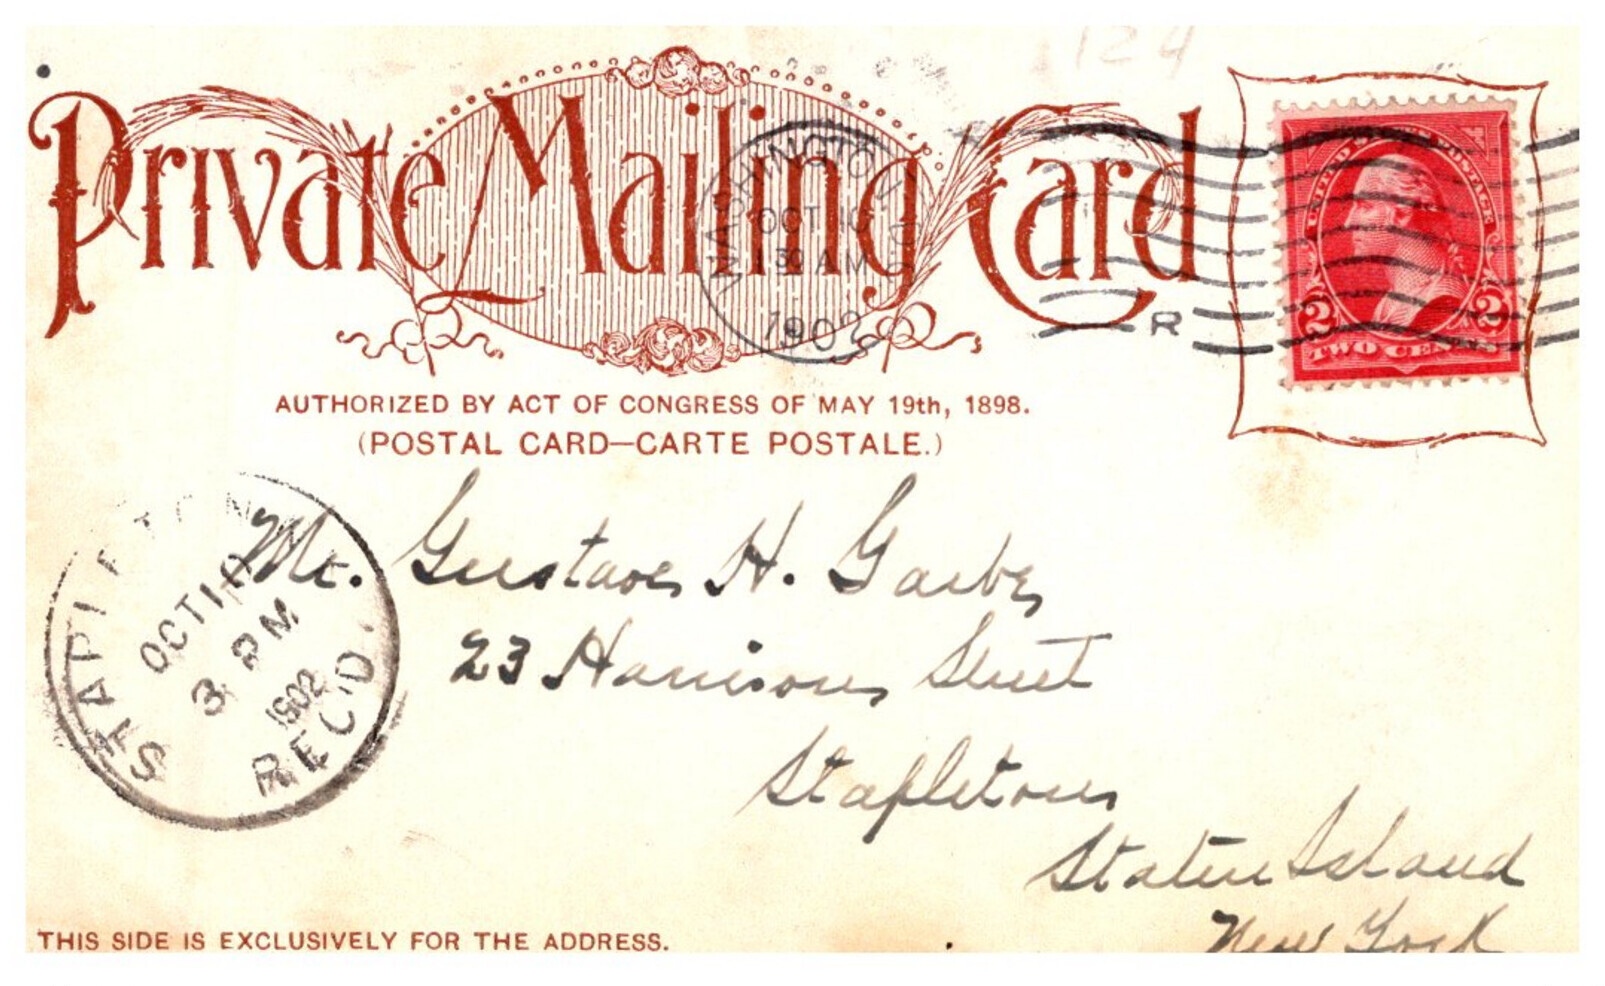 124
Private Mailing Card
WASHINGTON, D.C.
OCT 10
1 30 AM
1902
R
UNITED STATES POSTAGE
2 2
TWO CENTS
AUTHORIZED BY ACT OF CONGRESS OF MAY 19th, 1898.
(POSTAL CARD—CARTE POSTALE.)
STAPLETON
OCT 10
3 PM
1902
REC'D.
Mr. Gustave H.
23 Harrison Street
Stapleton
Staten Island
New York
THIS SIDE IS EXCLUSIVELY FOR THE ADDRESS.